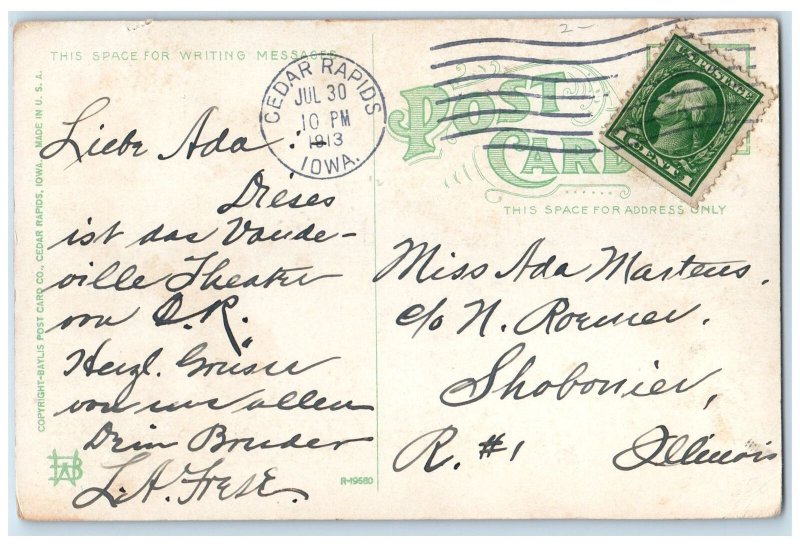 THIS SPACE FOR WRITING MESSAGES
CEDAR RAPIDS
JUL 30
10 PM
1913
IOWA.
POST
CARD
THIS SPACE FOR ADDRESS ONLY
U.S. POSTAGE
1 CENT 1
2-
COPYRIGHT-BAYLIS POST CARD CO., CEDAR RAPIDS, IOWA. MADE IN U. S. A.
Liebe Ada!
Dieses
ist das Vaude-
ville Theater
von C.R.
Herzl. Grüsse
von uns allen
Dein Bruder
L.A. Frese.
R-19580
Miss Ada Martens.
c/o N. Roemer.
Shobonier,
R. #1 Illinois